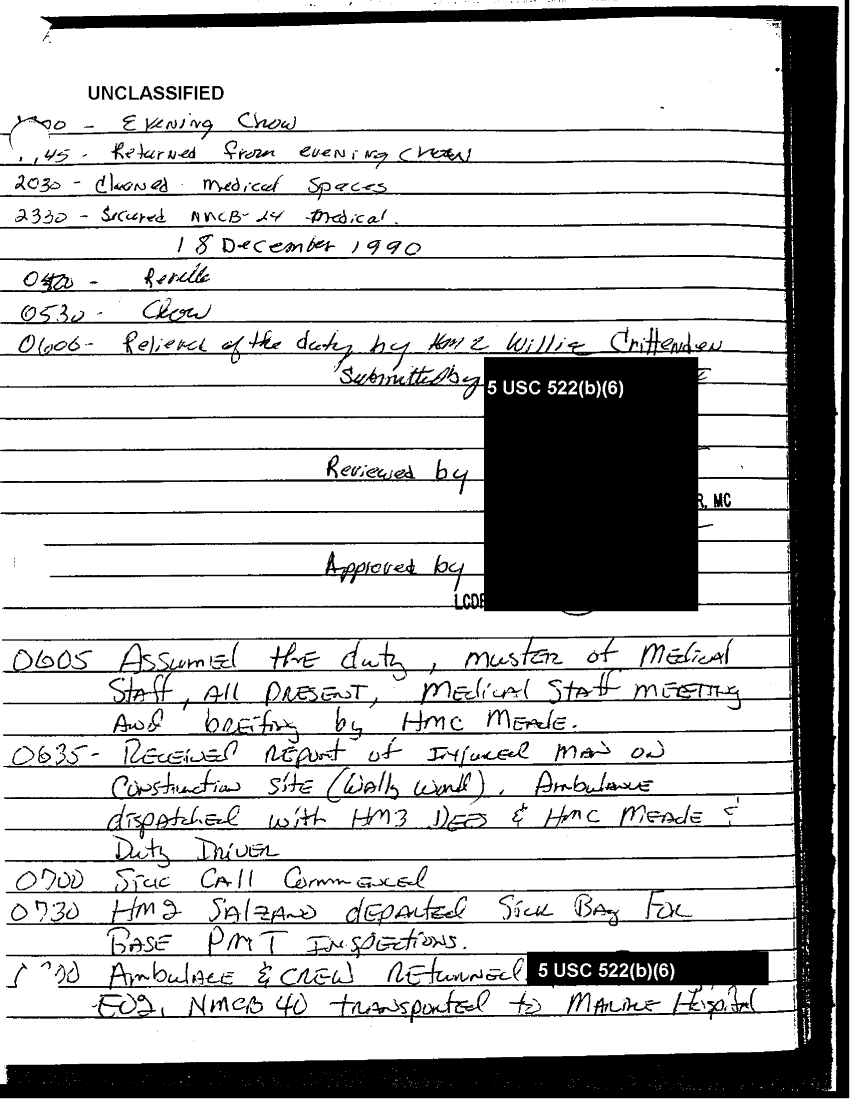 UNCLASSIFIED
00 - Evening Chow
45 - Returned from evening chow
2030 - Cleaned medical Spaces
2330 - Secured NMCB-24 medical.
18 December 1990
- Reveille
0530 - Chow
0606 - Relieved of the duty by HM2 Willie Crittenden
Submitted by
5 USC 522(b)(6)
Reviewed by
R, MC
Approved by
LCDR
0605 Assumed the duty, muster of Medical
Staff, All PRESENT, Medical Staff MEETING
And breifing by HMC MEADE.
0635- RECEIVED REPORT of INJURED MAN ON
Construction site (Wally World). Ambulance
dispatched with HM3 DEES & HMC MEADE &
Duty DRIVER
0700 Sick CAll Commenced
0730 HM2 SALZANO departed Sick Bay FOR
BASE PMT INSPECTIONS.
00 Ambulace & CREW RETURNED 5 USC 522(b)(6)
EO2, NMCB 40 transported to MARINE Hospital